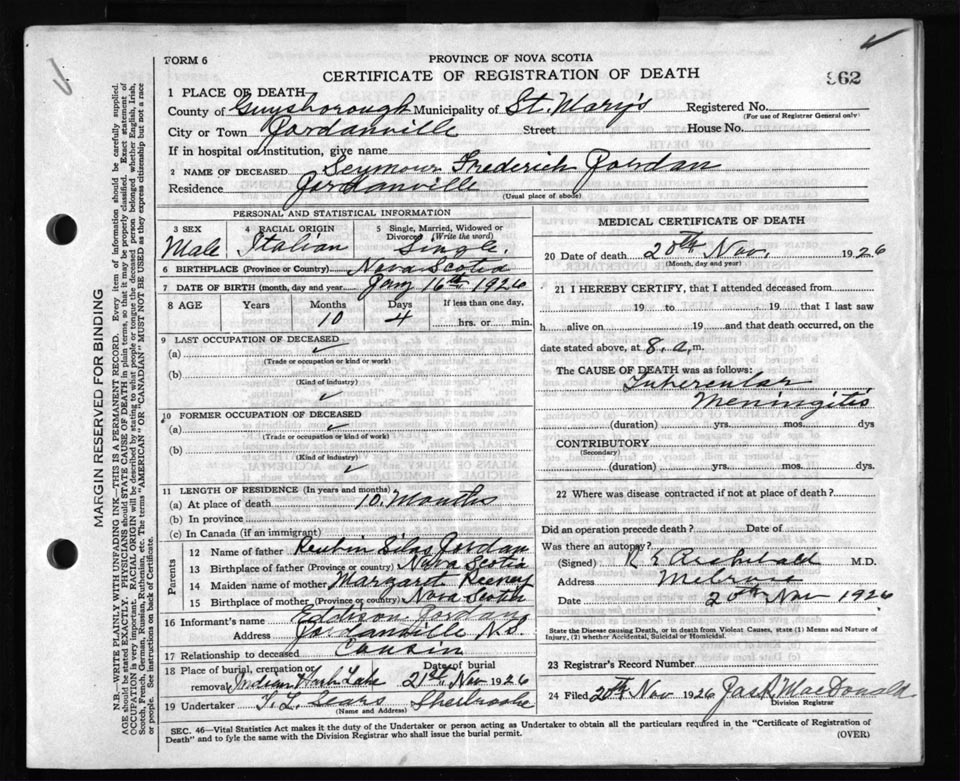 FORM 6
PROVINCE OF NOVA SCOTIA
CERTIFICATE OF REGISTRATION OF DEATH
962
1 PLACE OF DEATH
County of Guysborough Municipality of St. Mary's Registered No.
(For use of Registrar General only)
City or Town Jordanville Street House No.
If in hospital or institution, give name
2 NAME OF DECEASED Seymour Frederick Jordan
Residence Jordanville
(Usual place of abode)
PERSONAL AND STATISTICAL INFORMATION
3 SEX 4 RACIAL ORIGIN 5 Single, Married, Widowed or Divorced (Write the word)
Male Italian Single.
6 BIRTHPLACE (Province or Country) Nova Scotia
7 DATE OF BIRTH (month, day and year) Jany 16th 1926
8 AGE Years Months Days If less than one day,
10 4 hrs. or min.
9 LAST OCCUPATION OF DECEASED
(a)
(Trade or occupation or kind of work)
(b)
(Kind of industry)
10 FORMER OCCUPATION OF DECEASED
(a)
(Trade or occupation or kind of work)
(b)
(Kind of industry)
11 LENGTH OF RESIDENCE (In years and months)
(a) At place of death 10. Months
(b) In province
(c) In Canada (if an immigrant)
Parents
12 Name of father Reubin Silas Jordan
13 Birthplace of father (Province or country) Nova Scotia
14 Maiden name of mother Margaret
15 Birthplace of mother (Province or country) Nova Scotia
16 Informant's name Eddison Jordan
Address Jordanville N.S.
17 Relationship to deceased Cousin
18 Place of burial, cremation or removal Indian Lake Date of burial 21st Nov 1926
19 Undertaker Sherbrooke
(Name and Address)
MEDICAL CERTIFICATE OF DEATH
20 Date of death 20th Nov. 1926
(Month, day and year)
21 I HEREBY CERTIFY, that I attended deceased from
19 to 19 that I last saw
h alive on 19 and that death occurred, on the
date stated above, at 8. a. m.
The CAUSE OF DEATH was as follows:
Tubercular
Meningitis
(duration) yrs. mos. dys
CONTRIBUTORY
(Secondary)
(duration) yrs. mos. dys.
22 Where was disease contracted if not at place of death?
Did an operation precede death? Date of
Was there an autopsy?
(Signed) Archibald M.D.
Address Melrose
Date 20th Nov 1926
State the Disease causing Death, or in death from Violent Causes, state (1) Means and Nature of
Injury, (2) whether Accidental, Suicidal or Homicidal.
23 Registrar's Record Number
24 Filed 20th Nov 1926 Jas. R. MacDonald
Division Registrar
SEC. 46—Vital Statistics Act makes it the duty of the Undertaker or person acting as Undertaker to obtain all the particulars required in the "Certificate of Registration of
Death" and to fyle the same with the Division Registrar who shall issue the burial permit.
(OVER)
MARGIN RESERVED FOR BINDING
N.B.—WRITE PLAINLY WITH UNFADING INK—THIS IS A PERMANENT RECORD. Every item of information should be carefully supplied.
AGE should be stated EXACTLY. PHYSICIANS should STATE CAUSE OF DEATH in plain terms, so that it may be properly classified. Exact statement of
OCCUPATION is very important. RACIAL ORIGIN will be described by stating to what people or tongue the deceased person belonged whether English, Irish,
Scotch, French, German, Russian, Ruthenian, etc. The terms "AMERICAN" OR "CANADIAN" MUST NOT BE USED as they express citizenship but not a race
or people. See instructions on back of Certificate.